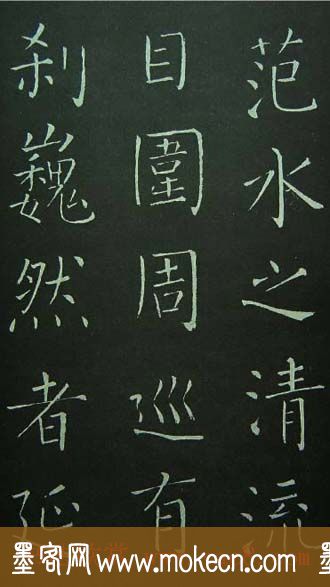 范水之清流
目圍周巡有
刹巍然者延
墨客网 www.mokecn.com 墨客网